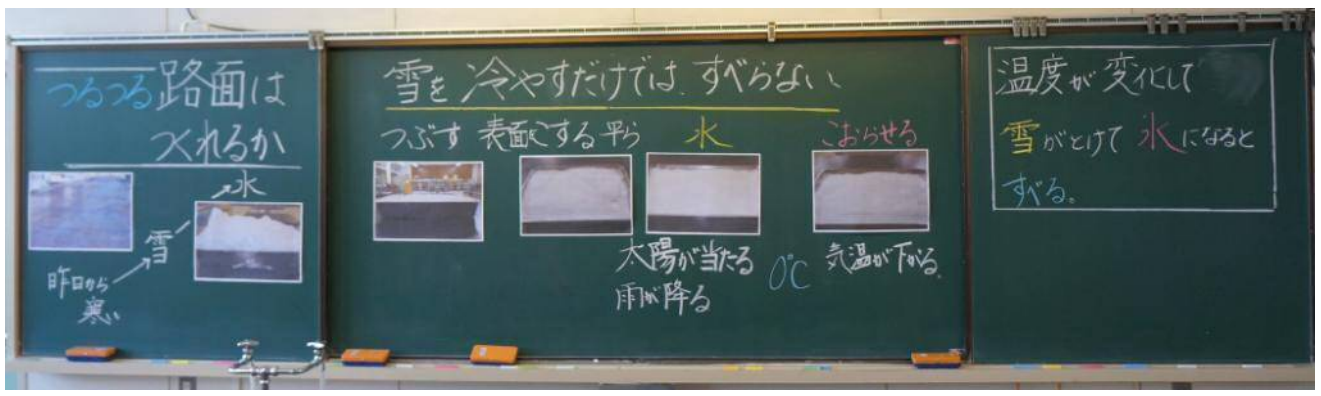 つるつる路面は
つくれるか
氷
雪
昨日から
寒い
雪を冷やすだけではすべらない
つぶす 表面をこする 平ら 水 こおらせる
太陽が当たる
雨が降る
0℃
気温が下がる。
温度が変化して
雪がとけて氷になると
すべる。